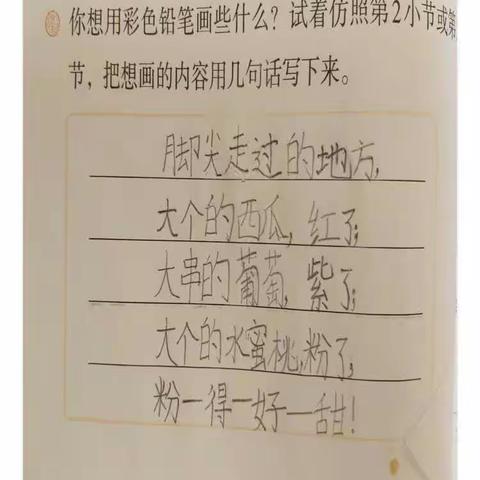 你想用彩色铅笔画些什么？试着仿照第2小节或第
节，把想画的内容用几句话写下来。
脚尖走过的地方，
大个的西瓜，红了；
大串的葡萄，紫了；
大个的水蜜桃，粉了，
粉一得一好一甜！